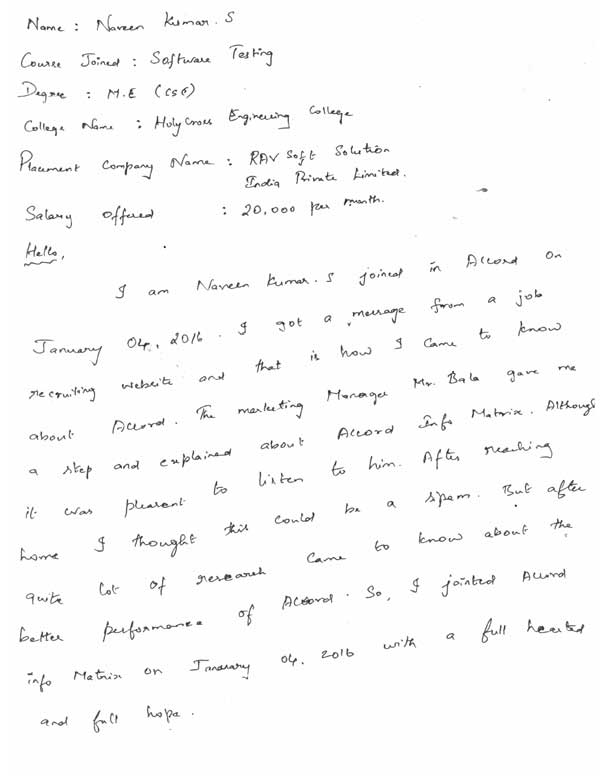 Name : Naveen Kumar. S
Course Joined : Software Testing
Degree : M.E (CSE)
College Name : Holy Cross Engineering College
Placement Company Name : RAV Soft Solution
India Private Limited.
Salary Offered : 20,000 per month.
Hello,
I am Naveen Kumar. S joined in Accord on
January 04, 2016. I got a message from a job
recruiting website and that is how I came to know
about Accord. The marketing Manager Mr. Bala gave me
a step and explained about Accord Info Matrix. Although
it was pleasent to listen to him. After reaching
home I thought this could be a spam. But after
quite lot of research came to know about the
better performance of Accord. So, I jointed Accord
info Matrix on Janarary 04, 2016 with a full hearted
and full hope.